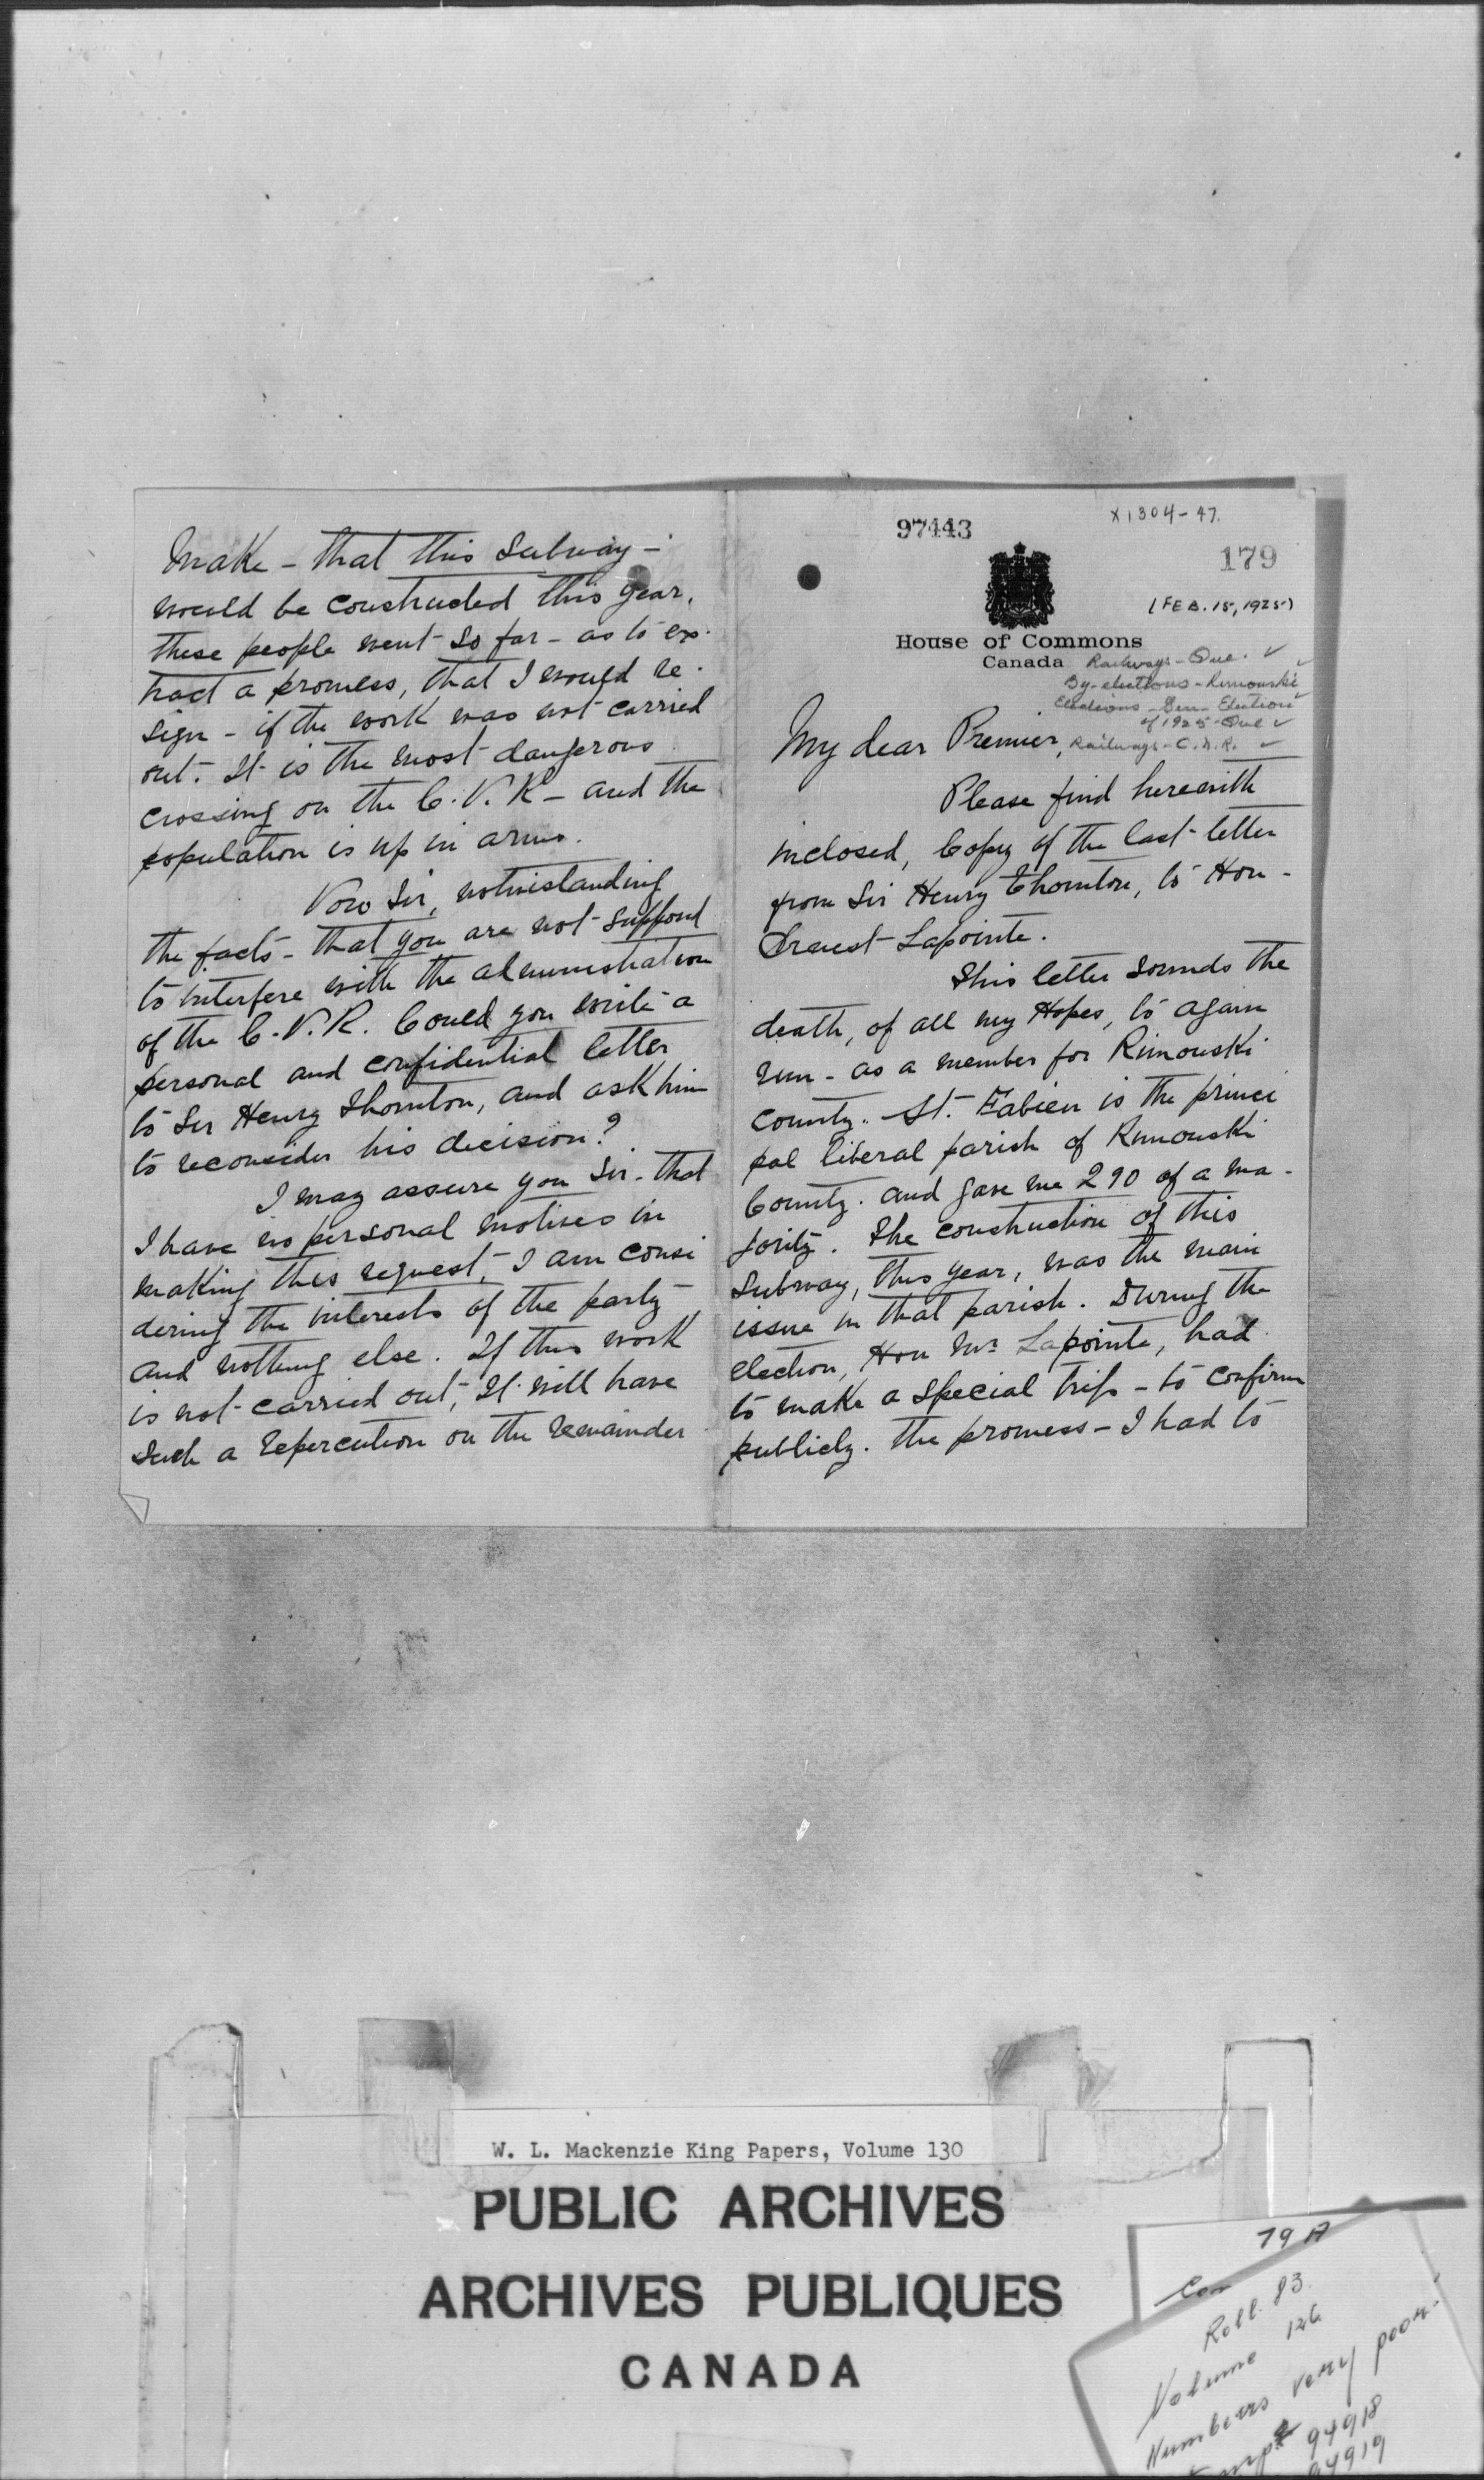 97443
X1304-47.
179
(FEB. 15, 1925)
House of Commons
Canada
Railways - Que. ✓
By-elections - Rimouski ✓
Elections - Gen - Election ✓
of 1925 - Que ✓
Railways - C.N.R. ✓
My dear Premier,
Please find herewith
inclosed, Copy of the last letter
from Sir Henry Thornton, to Hon -
Ernest Lapointe.
This letter sounds the
death, of all my Hopes, to again
run - as a member for Rimouski
County. St. Fabien is the princi
pal liberal parish of Rimouski
County. and gave me 290 of a ma -
jority. The construction of this
Subway, this year, was the main
issue in that parish. During the
election, Hon Mr. Lapointe, had
to make a special trip - to confirm
publicly. the promess - I had to
make - that this subway -
would be constructed this year.
these people went so far - as to ex.
tract a promess, that I would re.
sign - if the work was not carried
out. It is the most dangerous
crossing on the C.N.R - and the
population is up in arms.
Now Sir, notwistanding
the facts - that you are not suppond
to interfere with the administration
of the C.N.R. Could you write a
personal and confidential letter
to Sir Henry Thornton, and ask him
to reconsider his decision?
I may assure you Sir - that
I have no personal motives in
making this request, I am consi
dering the interests of the party
and nothing else. If this work
is not carried out, It will have
such a repercution on the remainder
W. L. Mackenzie King Papers, Volume 130
PUBLIC ARCHIVES
ARCHIVES PUBLIQUES
CANADA
79 A
Roll. 83
Volume 126
Numbers very poor-
94918
94919